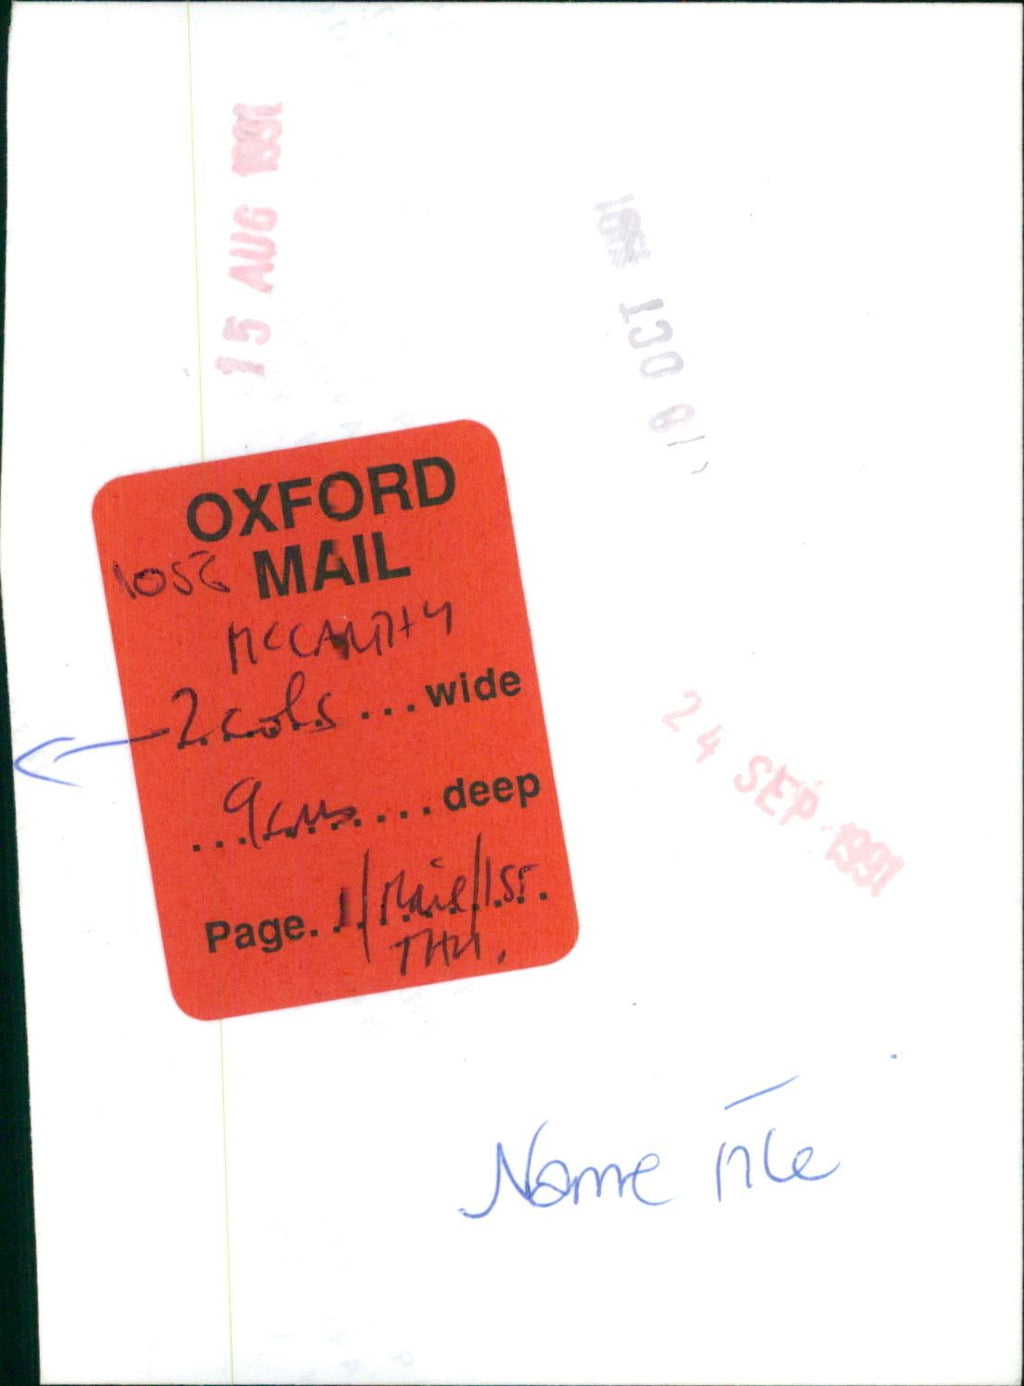 15 AUG 1991
OCT
OXFORD
MAIL
MCCARTHY
2 cols ... wide
9cms .... deep
Page. 1/Mail/1st.
THU.
24 SEP 1991
Name